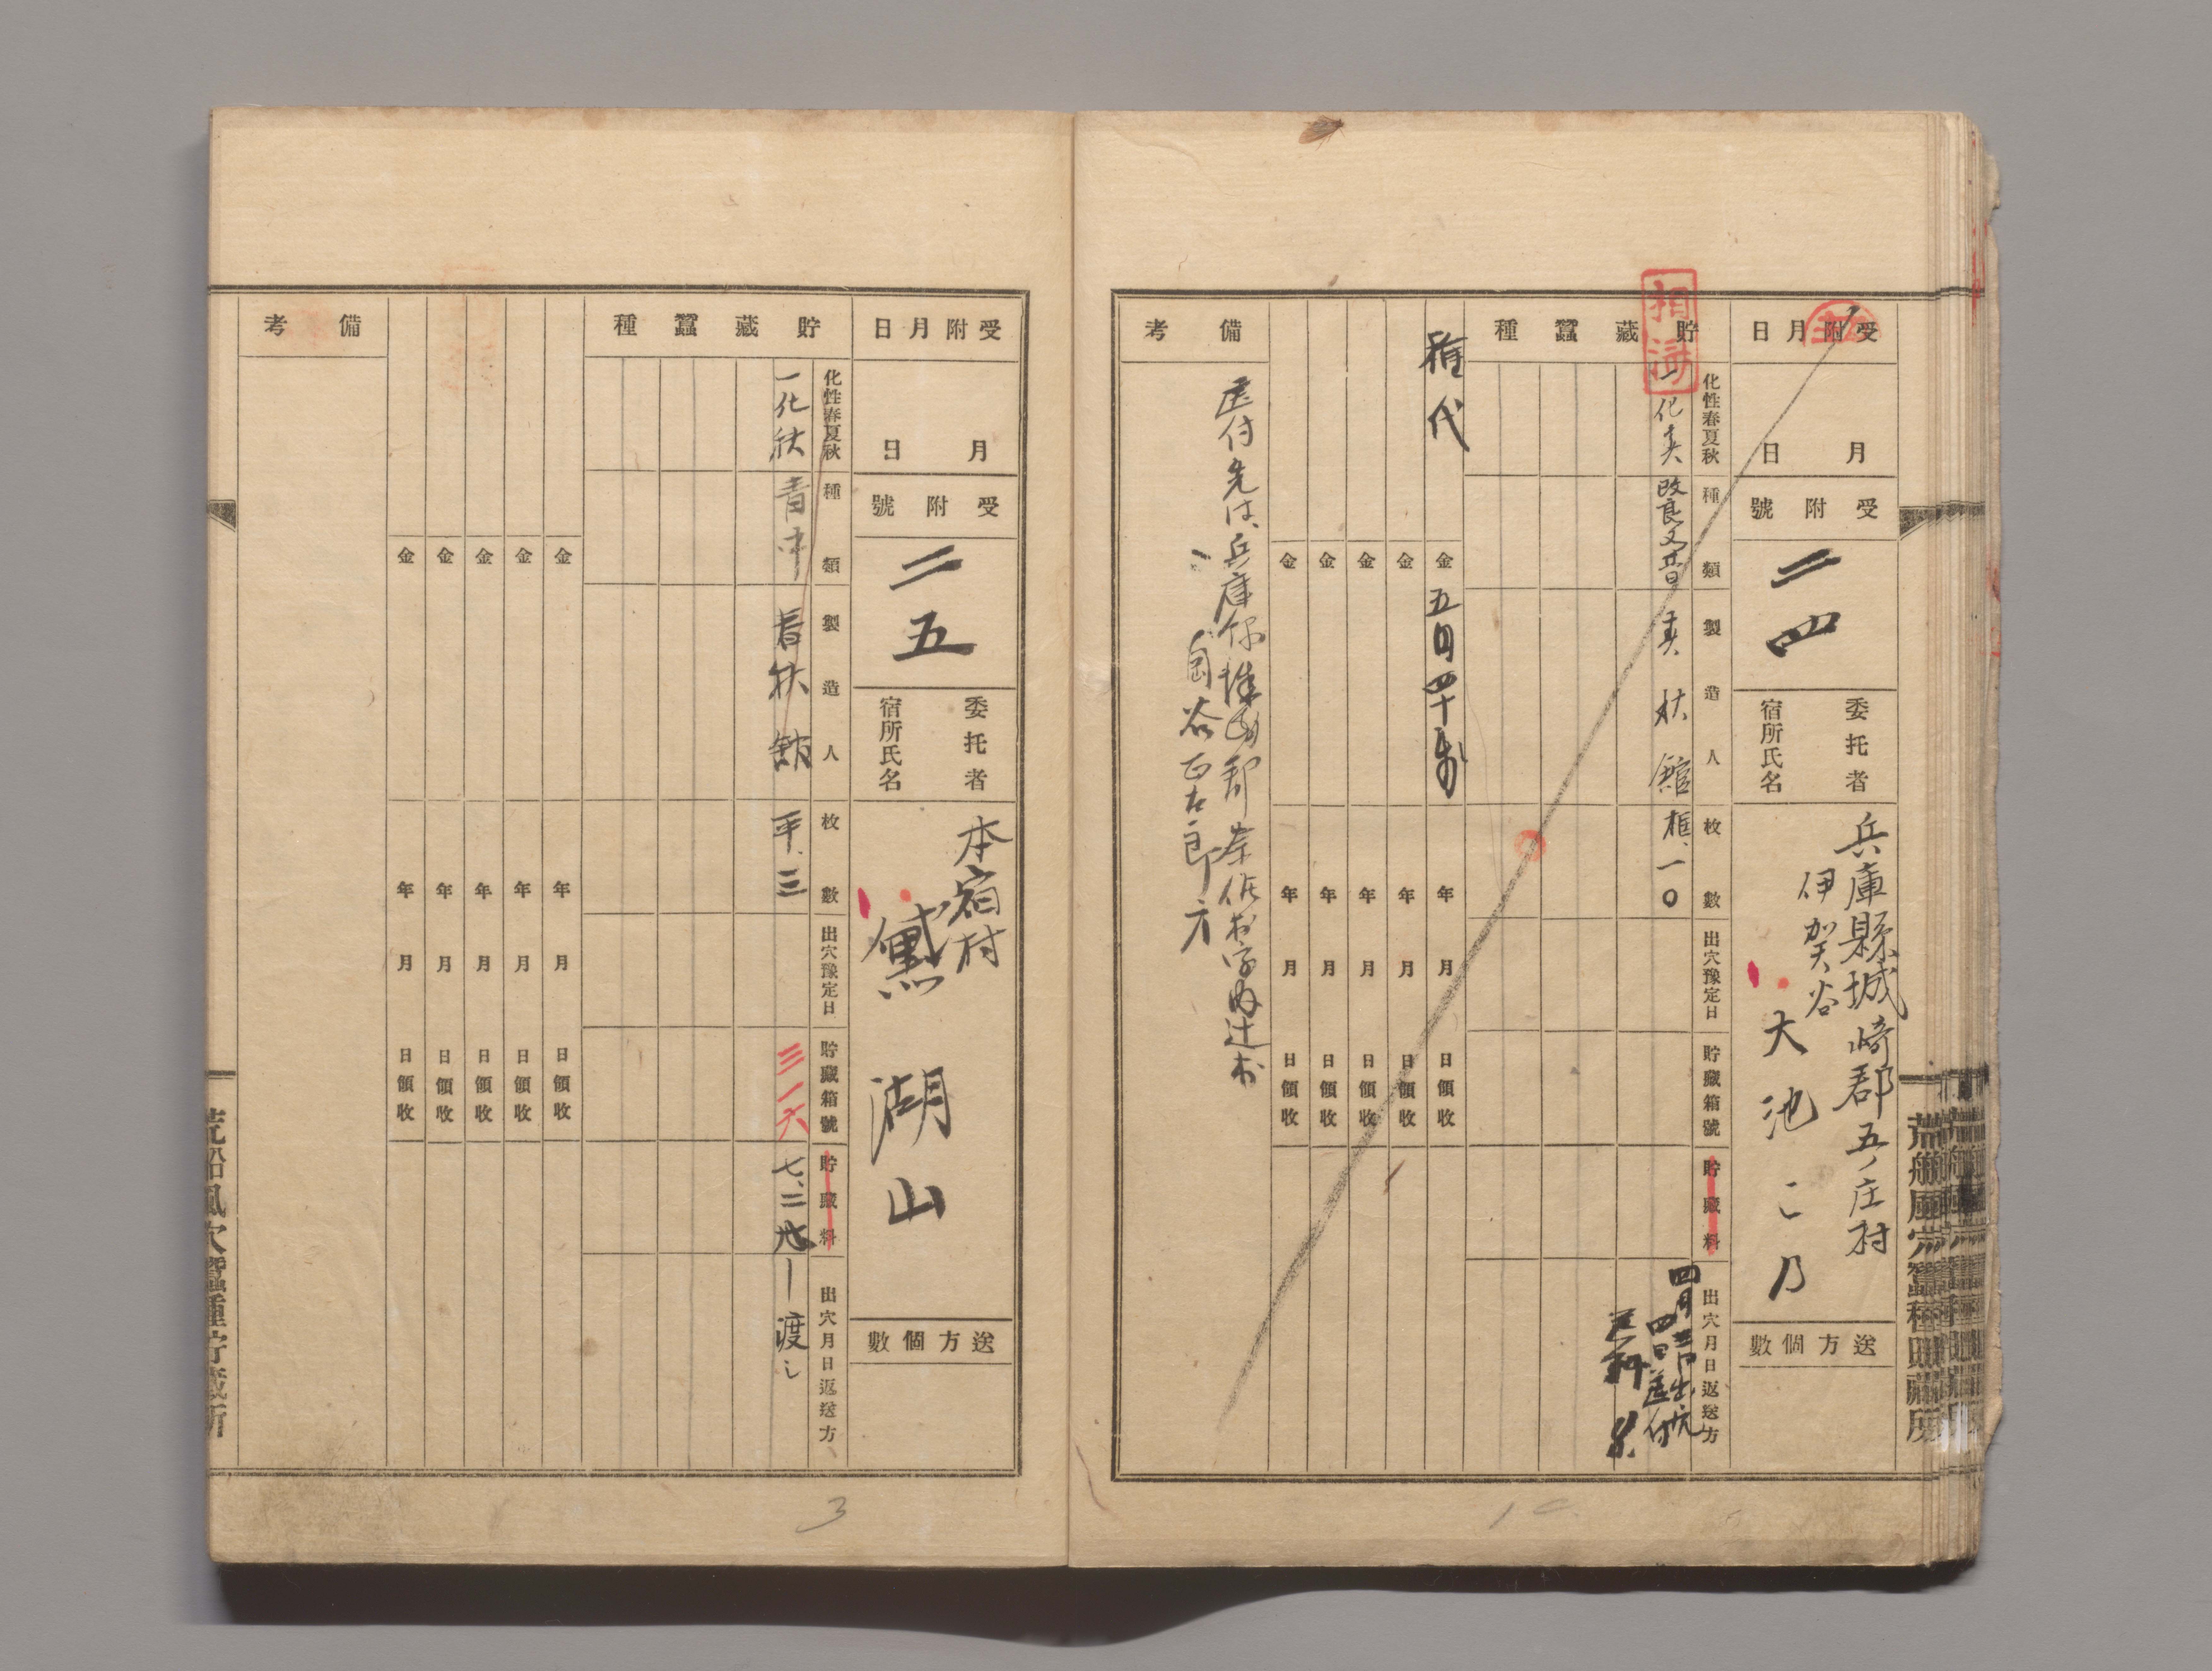 受附月日
月
日
受附號
二四
委托者
宿所氏名
兵庫縣城崎郡五ノ庄村
伊賀谷
大池この
送方個數
貯藏蠶種
相濟
化性春夏秋
種類
製造人
枚數
出穴豫定日
貯藏箱號
貯藏料
出穴月日返送方
一化
改良又昔
館
框、一〇
四日送付
種代
金
五円四十
年月日領收
金
年月日領收
金
年月日領收
金
年月日領收
金
年月日領收
備考
送付先は、兵庫
谷
郎方
荒船風穴蠶種貯藏所
受附月日
月
日
受附號
二五
委托者
宿所氏名
本宿村
黛湖山
送方個數
貯藏蠶種
化性春夏秋
種類
製造人
枚數
出穴豫定日
貯藏箱號
貯藏料
出穴月日返送方
一化秋
青中
春秋館
平、三
三一六
渡し
金
年月日領收
金
年月日領收
金
年月日領收
金
年月日領收
金
年月日領收
備考
荒船風穴蠶種貯藏所
3